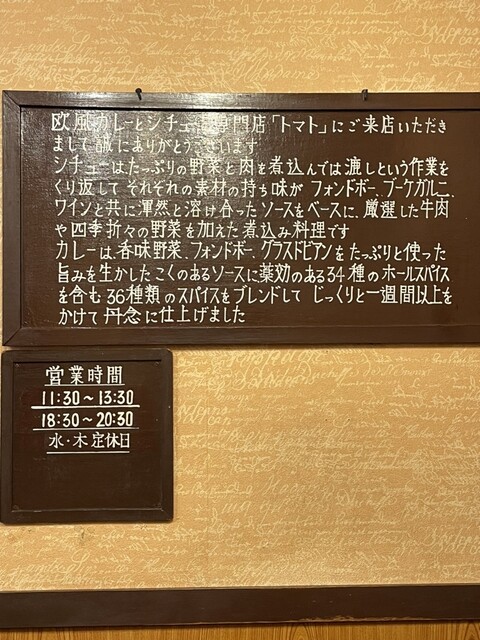 欧風カレーとシチュー専門店「トマト」にご来店いただき
まして誠にありがとうございます
シチューはたっぷりの野菜と肉を煮込んでは漉しという作業を
くり返して それぞれの素材の持ち味が フォンドボー、ブーケガルニ、
ワインと共に渾然と溶け合ったソースをベースに、厳選した牛肉
や四季折々の野菜を加えた煮込み料理です
カレーは、香味野菜、フォンドボー、グラスドビアンをたっぷりと使った
旨みを生かしたこくのあるソースに薬効のある34種のホールスパイス
を含む 36種類のスパイスをブレンドして じっくりと一週間以上を
かけて 丹念に仕上げました
営業時間
11:30～13:30
18:30～20:30
水・木定休日